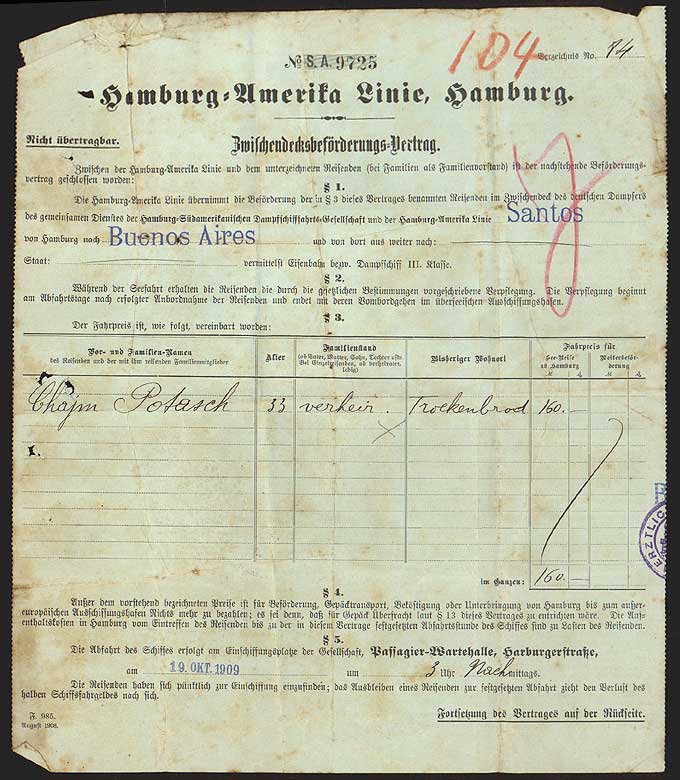 № S.A. 9725
104
Verzeichnis No. 84
Hamburg-Amerika Linie, Hamburg.
Nicht übertragbar.
Zwischendecksbeförderungs-Vertrag.
Zwischen der Hamburg-Amerika Linie und dem unterzeichneten Reisenden (bei Familien als Familienvorstand) ist der nachstehende Beförderungs-
vertrag geschlossen worden:
§ 1.
Die Hamburg-Amerika Linie übernimmt die Beförderung der in § 3 dieses Vertrages benannten Reisenden im Zwischendeck des deutschen Dampfers
des gemeinsamen Dienstes der Hamburg-Südamerikanischen Dampfschifffahrts-Gesellschaft und der Hamburg-Amerika Linie Santos
von Hamburg nach Buenos Aires und von dort aus weiter nach:
Staat: vermittelst Eisenbahn bezw. Dampfschiff III. Klasse.
§ 2.
Während der Seefahrt erhalten die Reisenden die durch die gesetzlichen Bestimmungen vorgeschriebene Verpflegung. Die Verpflegung beginnt
am Abfahrtstage nach erfolgter Anbordnahme der Reisenden und endet mit deren Vonbordgehen im überseeischen Ausschiffungshafen.
§ 3.
Der Fahrpreis ist, wie folgt, vereinbart worden:
Vor- und Familien-Namen
des Reisenden und der mit ihm reisenden Familienmitglieder
Alter
Familienstand
(ob Vater, Mutter, Sohn, Tochter usw.
Bei Einzelreisenden, ob verheiratet,
ledig)
Bisheriger Wohnort
Fahrpreis für
See-Reise
ab Hamburg
Weiterbeför-
derung
Chajm Potasch 33 verheir. Trockenbrod 160.—
1.
im Ganzen: 160.—
ÄRZTLICH
§ 4.
Außer dem vorstehend bezeichneten Preise ist für Beförderung, Gepäcktransport, Beköstigung oder Unterbringung von Hamburg bis zum außer-
europäischen Ausschiffungshafen Nichts mehr zu bezahlen; es sei denn, daß für Gepäck Überfracht laut § 13 dieses Vertrages zu entrichten wäre. Die Auf-
enthaltskosten in Hamburg vom Eintreffen des Reisenden bis zu der in diesem Vertrage festgesetzten Abfahrtsstunde des Schiffes sind zu Lasten des Reisenden.
§ 5.
Die Abfahrt des Schiffes erfolgt am Einschiffungsplatze der Gesellschaft, Passagier-Wartehalle, Harburgerstraße,
am 19. OKT. 1909 um 3 Uhr Nachmittags.
Die Reisenden haben sich pünktlich zur Einschiffung einzufinden; das Ausbleiben eines Reisenden zur festgesetzten Abfahrt zieht den Verlust des
halben Schiffsfahrgeldes nach sich.
F. 985.
August 1908.
Fortsetzung des Vertrages auf der Rückseite.